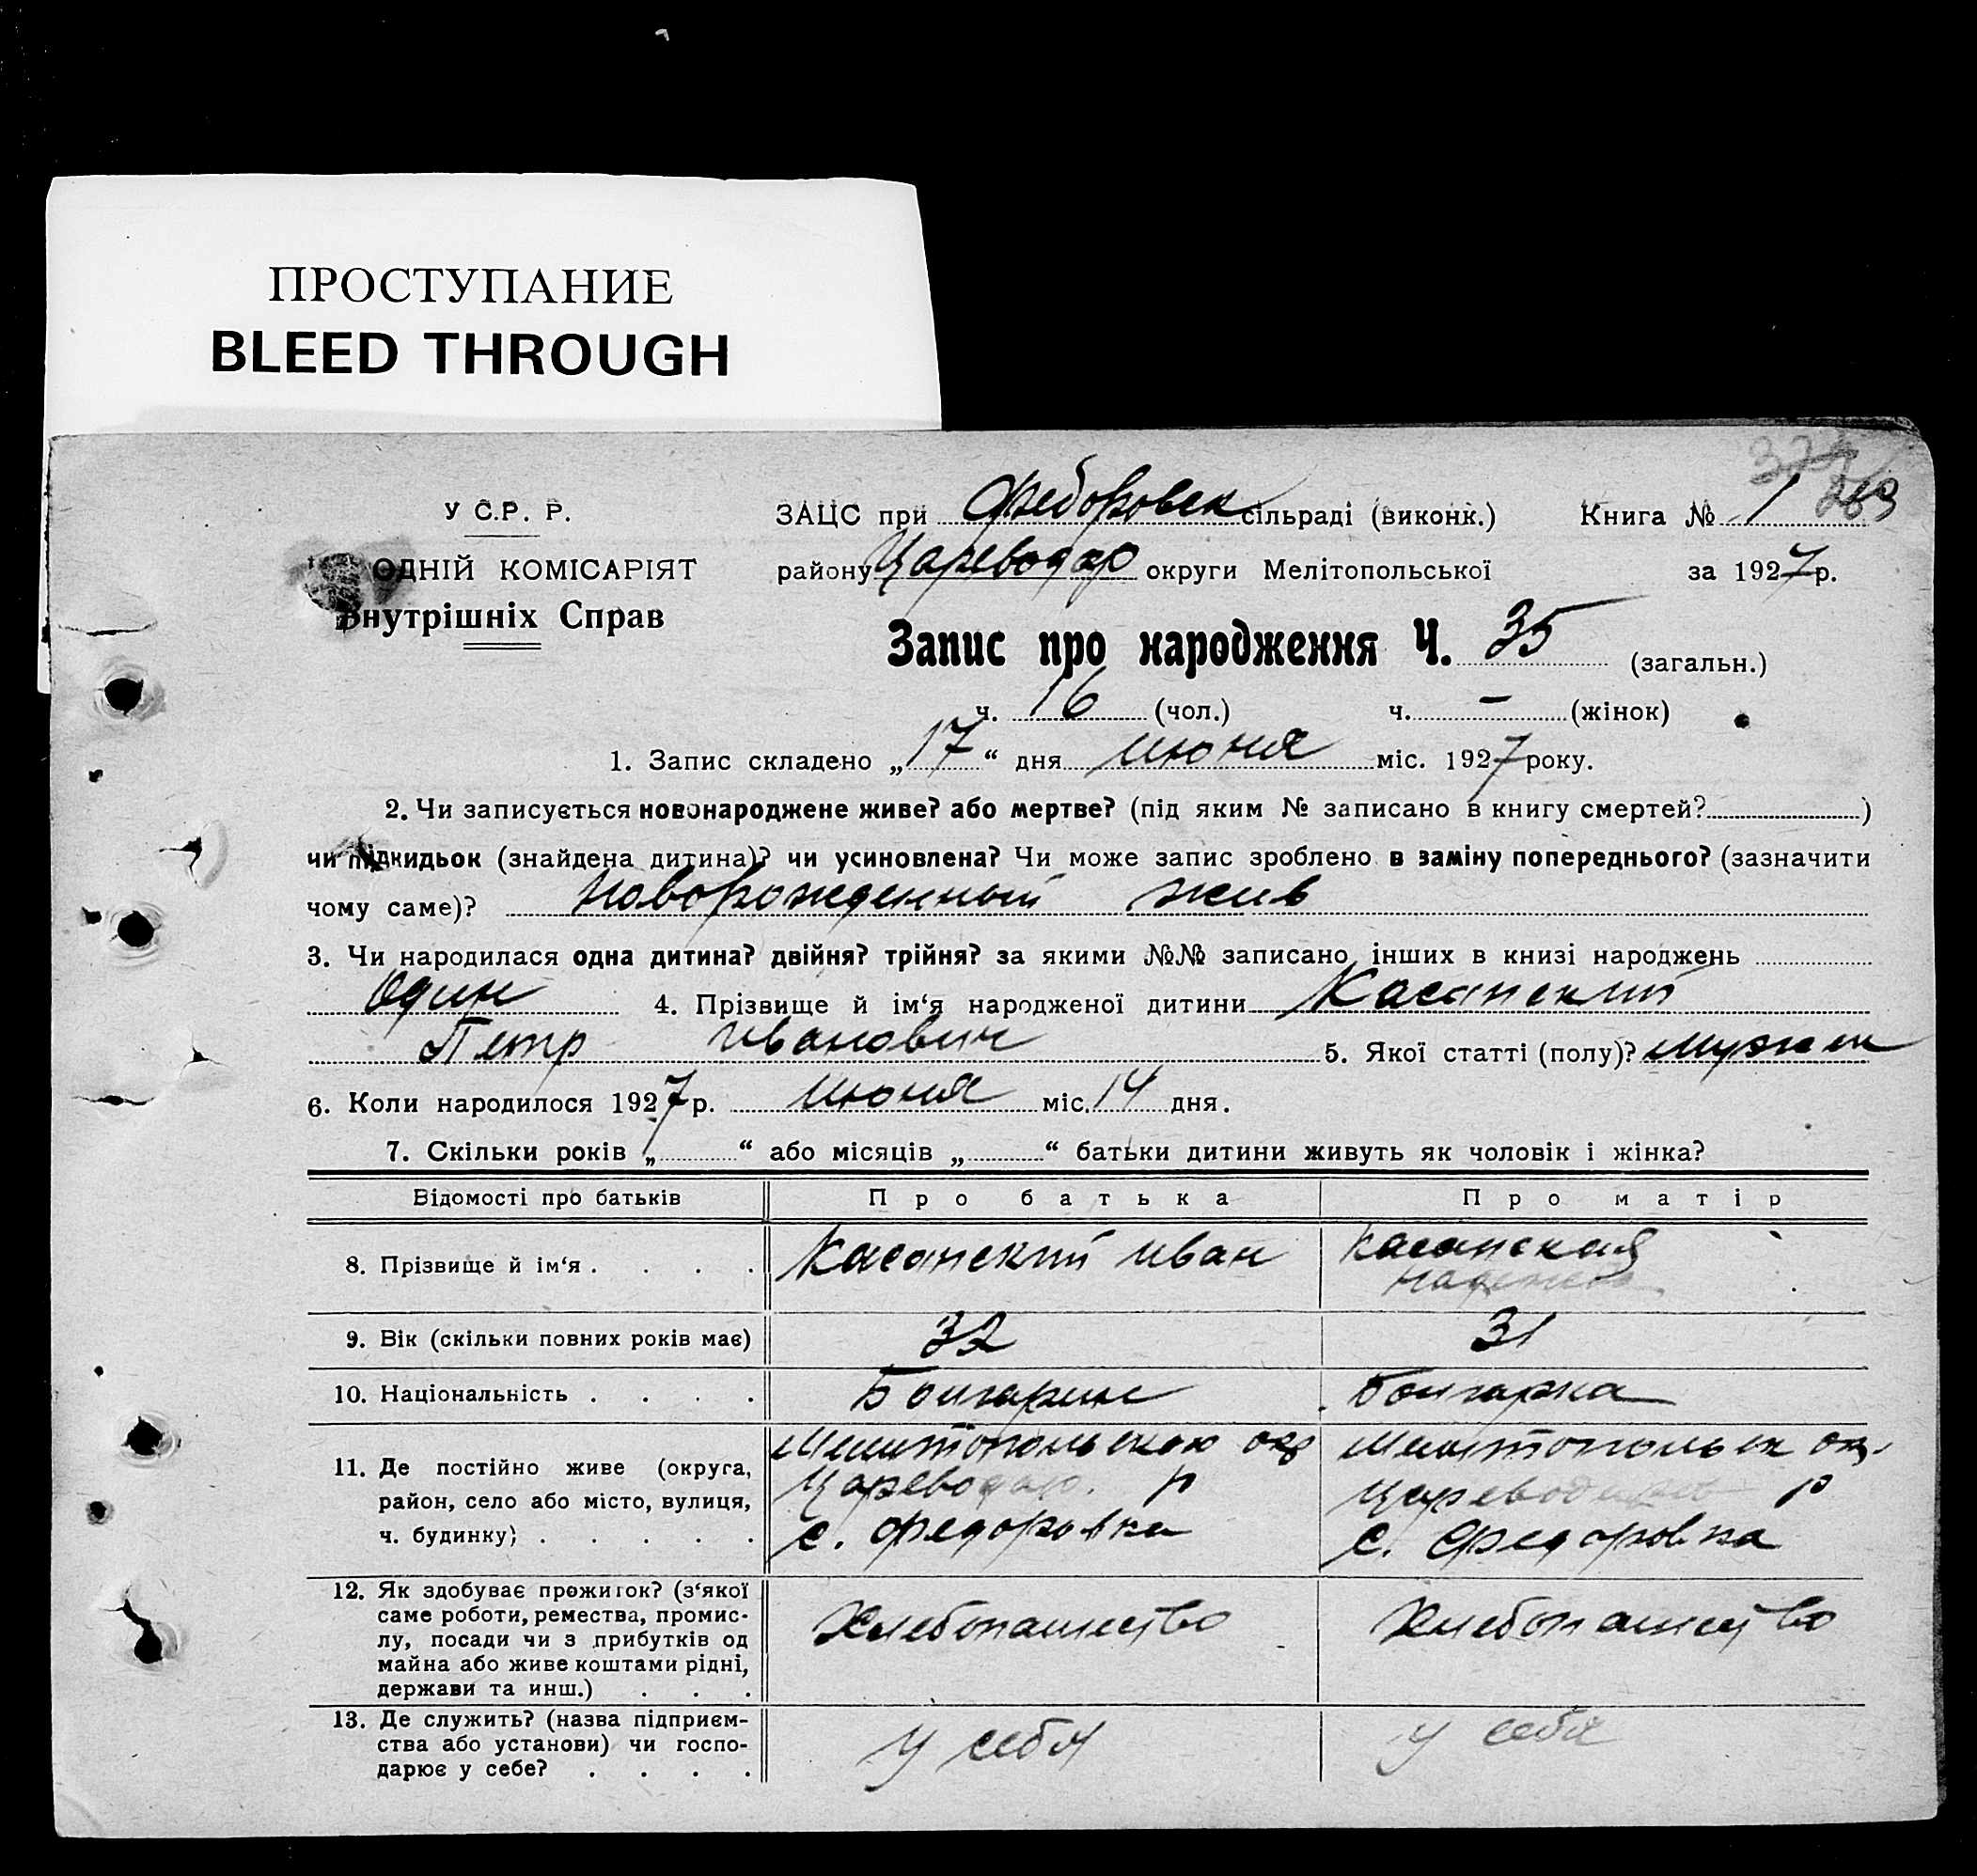 ПРОСТУПАНИЕ
BLEED THROUGH
У С.Р. Р.
ЗАЦС при Федоровск сільраді (виконк.) Книга № 1
ОДНІЙ КОМІСАРІЯТ
району Цареводар округи Мелітопольської за 1927 р.
Внутрішніх Справ
Запис про народження Ч. 35 (загальн.)
ч. 16 (чол.) ч. – (жінок)
1. Запис складено „17“ дня июня міс. 1927 року.
2. Чи записується новонароджене живе? або мертве? (під яким № записано в книгу смертей? )
чи підкидьок (знайдена дитина)? чи усиновлена? Чи може запис зроблено в заміну попереднього? (зазначити
чому саме)? Новорожденный жив
3. Чи народилася одна дитина? двійня? трійня? за якими №№ записано інших в книзі народжень
Один 4. Прізвище й ім‘я народженої дитини Касапский
Петр Иванович 5. Якої статті (полу)? мужск
6. Коли народилося 1927 р. июня міс. 14 дня.
7. Скільки років „ “ або місяців „ “ батьки дитини живуть як чоловік і жінка?
Відомості про батьків Про батька Про матір
8. Прізвище й ім‘я . . . . Касапский Иван Касапская
9. Вік (скільки повних років має) 32 31
10. Національність . . . . Болгарин Болгарка
11. Де постійно живе (округа, Мелитопольского окр Мелитопольск ок.
район, село або місто, вулиця, Цареводар. р р
ч. будинку) . . . . . с. Федоровка с. Федоровка
12. Як здобуває прожиток? (з‘якої
саме роботи, ремества, промис-
лу, посади чи з прибутків од Хлебопашество Хлебопашество
майна або живе коштами рідні,
держави та инш.) . . .
13. Де служить? (назва підприєм-
ства або установи) чи госпо- у себя у себя
дарює у себе? . . . .